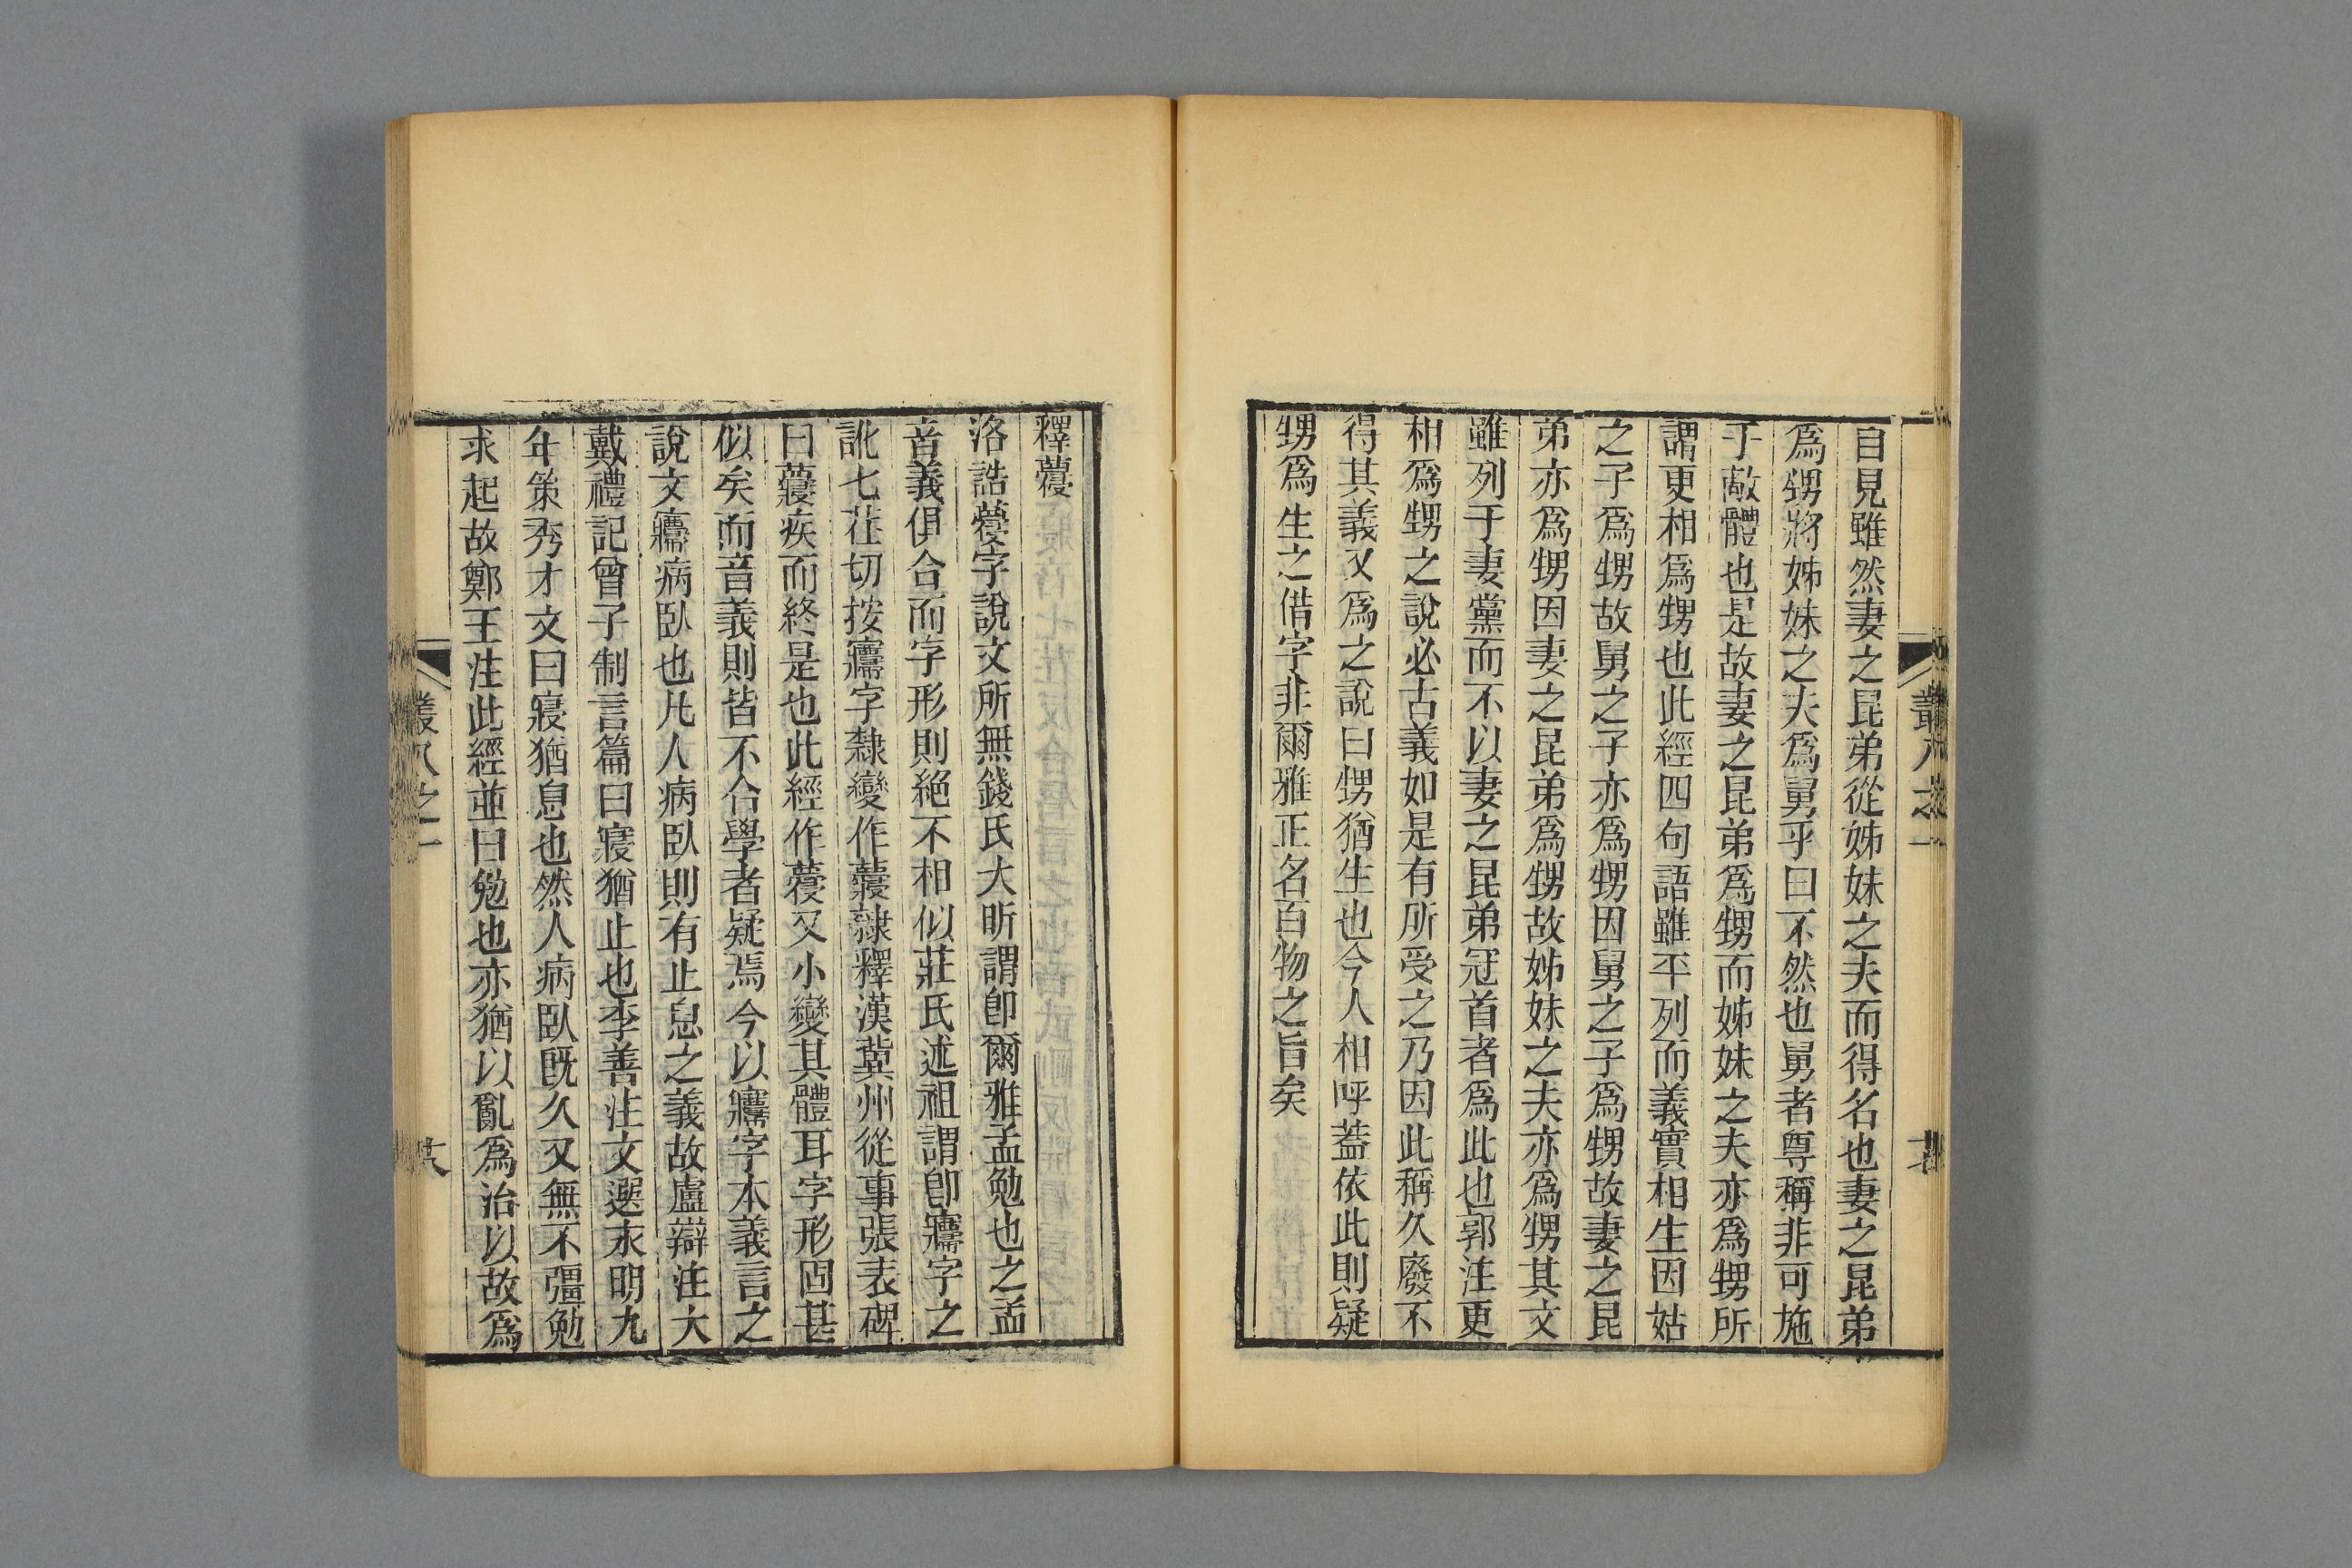 自見雖然妻之昆弟從姊妹之夫而得名也妻之昆弟
爲甥將姊妹之夫爲舅乎曰不然也舅者尊稱非可施
于敵體也是故妻之昆弟爲甥而姊妹之夫亦爲甥所
謂更相爲甥也此經四句語雖平列而義實相生因姑
之子爲甥故舅之子亦爲甥因舅之子爲甥故妻之昆
弟亦爲甥因妻之昆弟爲甥故姊妹之夫亦爲甥其文
雖列于妻黨而不以妻之昆弟冠首者爲此也郭注更
相爲甥之說必古義如是有所受之乃因此稱久廢不
得其義又爲之說曰甥猶生也今人相呼蓋依此則疑
甥爲生之借字非爾雅正名百物之旨矣
叢八之一
釋蘉
洛誥蘉字說文所無錢氏大昕謂卽爾雅孟勉也之孟
音義俱合而字形則絕不相似莊氏述祖謂卽㝲字之
訛七荏切按㝲字隸變作隸釋漢冀州從事張表碑
曰疾而終是也此經作蘉又小變其體耳字形固甚
似矣而音義則皆不合學者疑焉今以㝲字本義言之
說文㝲病臥也凡人病臥則有止息之義故盧辯注大
戴禮記曾子制言篇曰寢猶止也李善注文選永明九
年策秀才文曰寢猶息也然人病臥旣久又無不彊勉
求起故鄭王注此經並曰勉也亦猶以亂爲治以故爲
叢八之一